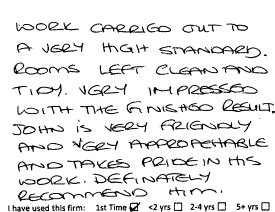 WORK CARRIED OUT TO
A VERY HIGH STANDARD.
ROOMS LEFT CLEAN AND
TIDY. VERY IMPRESSED
WITH THE FINISHED RESULT.
JOHN IS VERY FRIENDLY
AND VERY APPROACHABLE
AND TAKES PRIDE IN HIS
WORK. DEFINATELY
RECOMMEND HIM.
I have used this firm: 1st Time ☑ <2 yrs ☐ 2-4 yrs ☐ 5+ yrs ☐